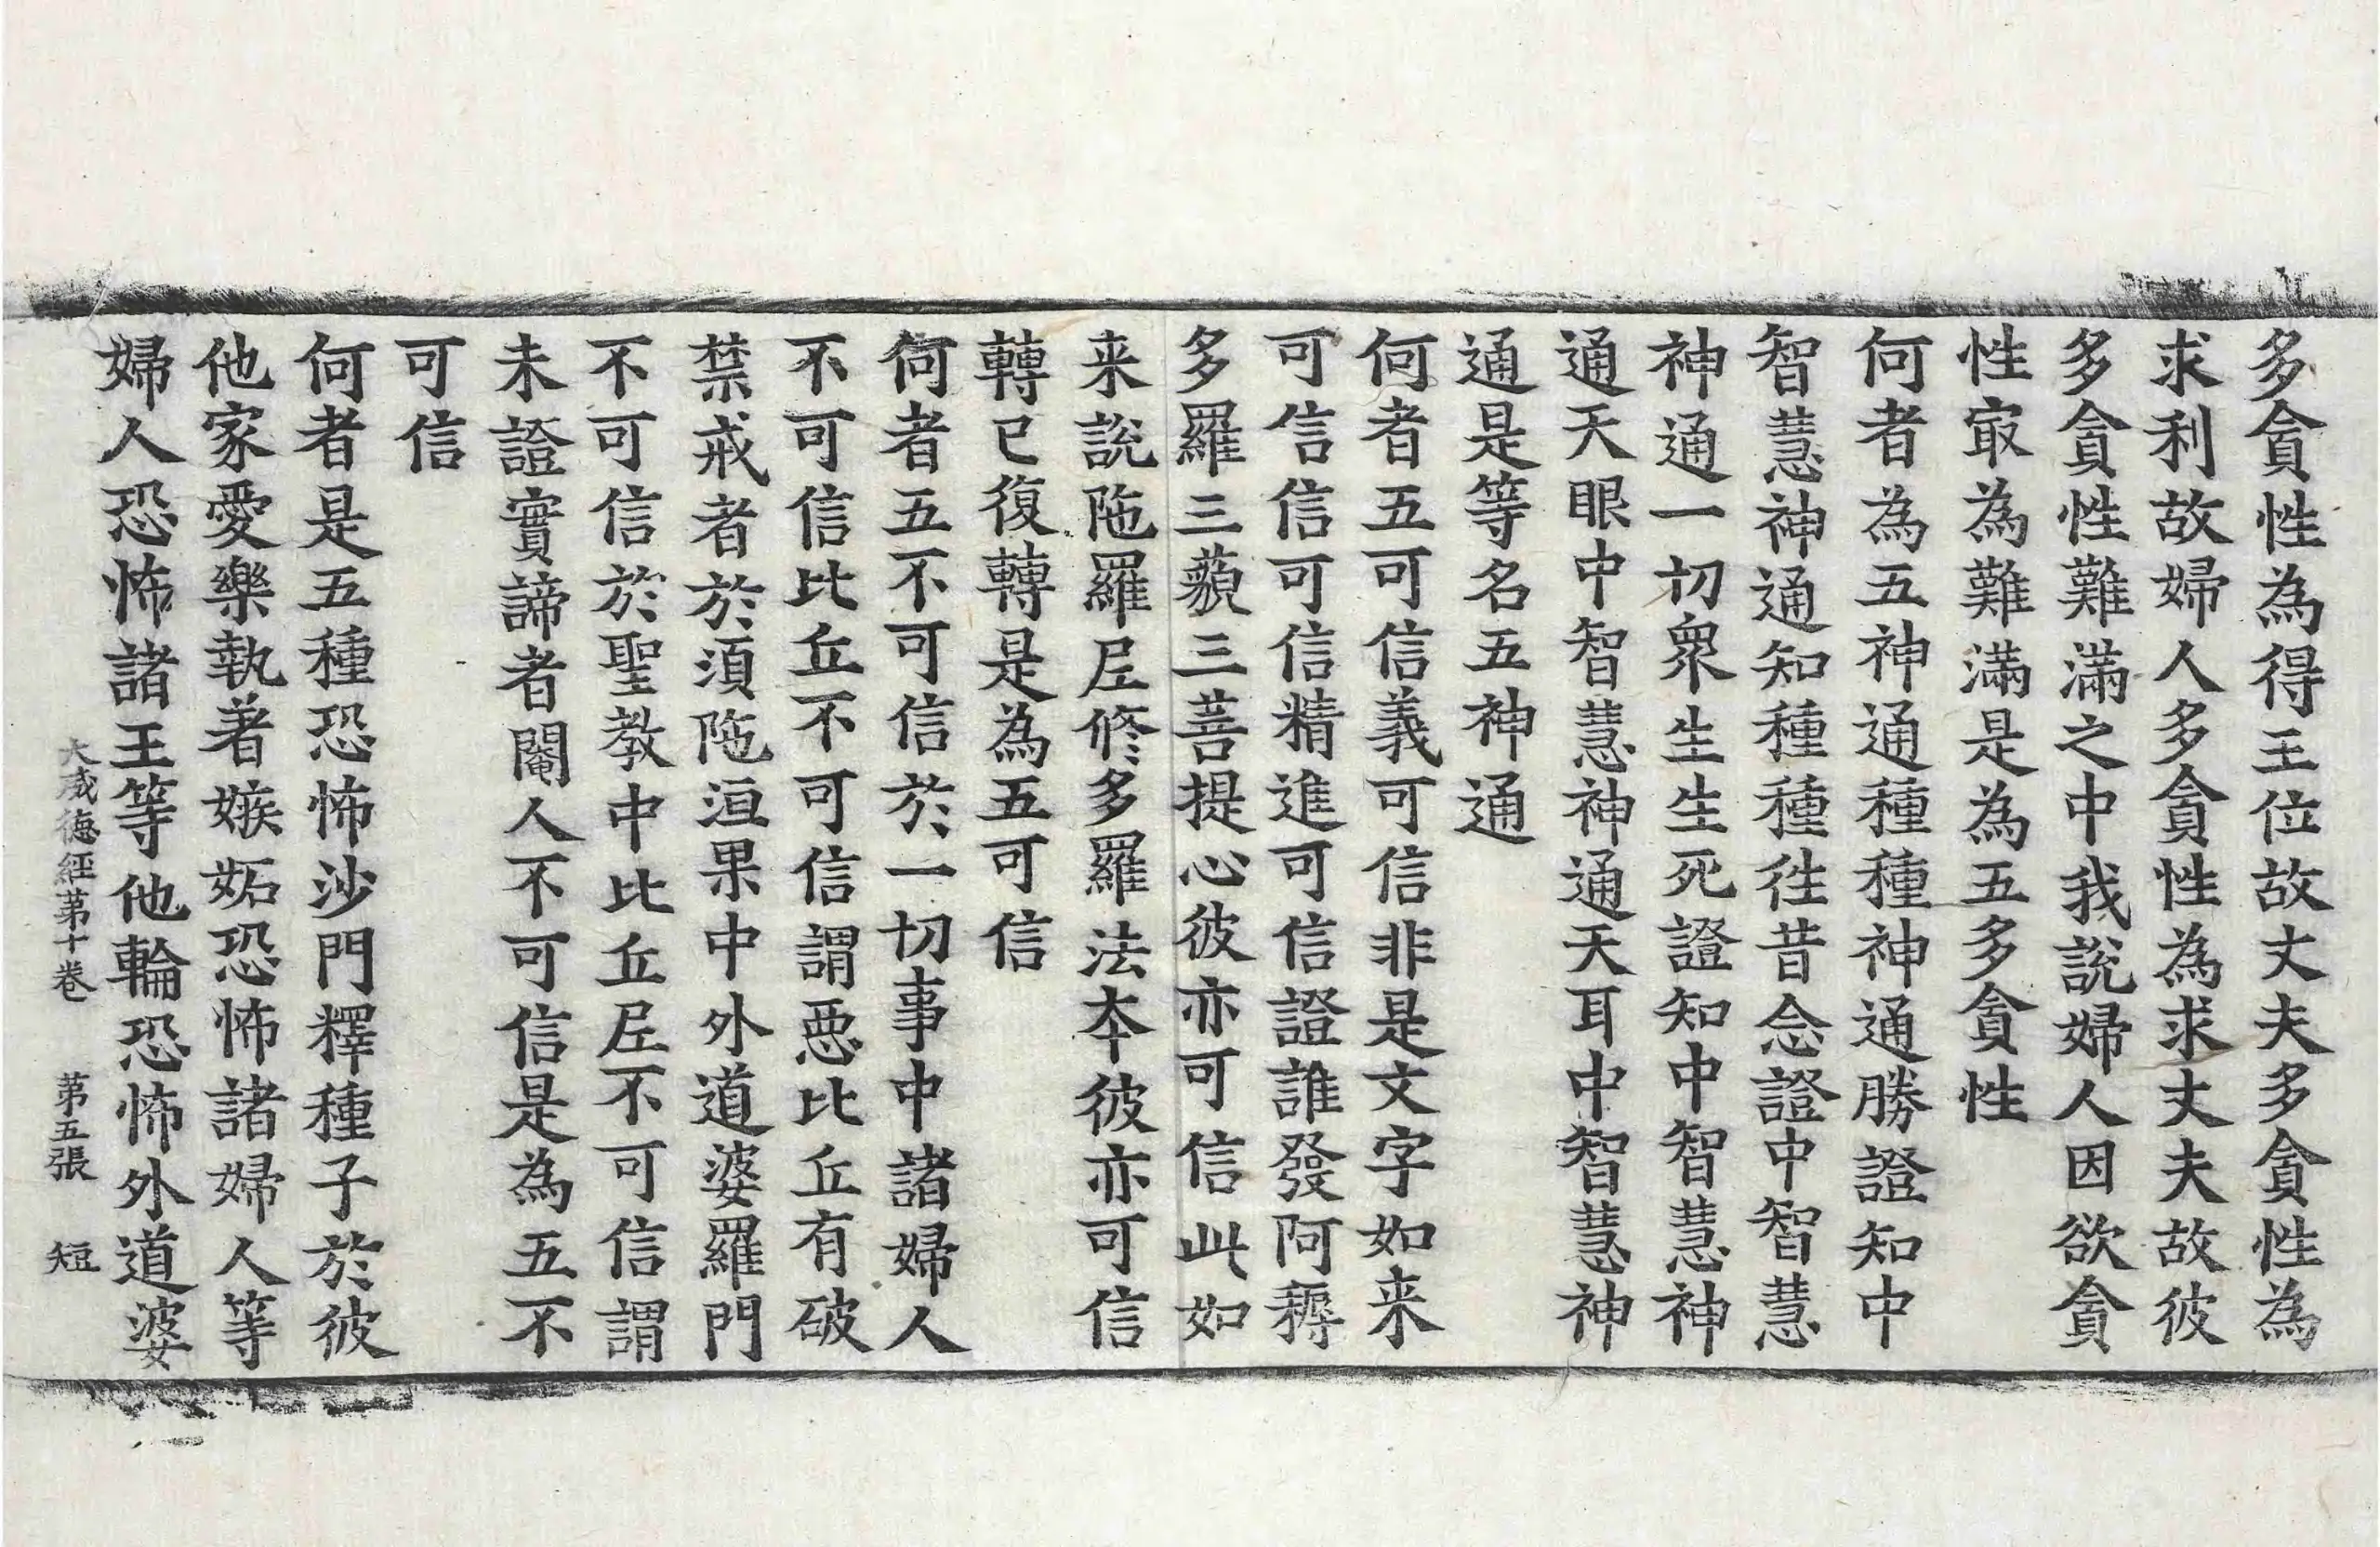 多貪性為得王位故丈夫多貪性為
求利故婦人多貪性為求丈夫故彼
多貪性難滿之中我說婦人因欲貪
性㝡為難滿是為五多貪性
何者為五神通種種神通勝證知中
智慧神通知種種徃昔念證中智慧
神通一切衆生生死證知中智慧神
通天眼中智慧神通天耳中智慧神
通是等名五神通
何者五可信義可信非是文字如来
可信信可信精進可信證誰發阿耨
多羅三藐三菩提心彼亦可信此如
来說陁羅𡰱修多羅法夲彼亦可信
轉已復轉是為五可信
何者五不可信於一切事中諸婦人
不可信比丘不可信謂惡比丘有破
禁戒者於須陁洹果中外道婆羅門
不可信於聖教中比丘𡰱不可信謂
未證實諦者閹人不可信是為五不
可信
何者是五種恐怖沙門釋種子於彼
他家愛樂執著嫉妬恐怖諸婦人等
婦人恐怖諸王等他輪恐怖外道婆
大威德經第十卷 第五張 短